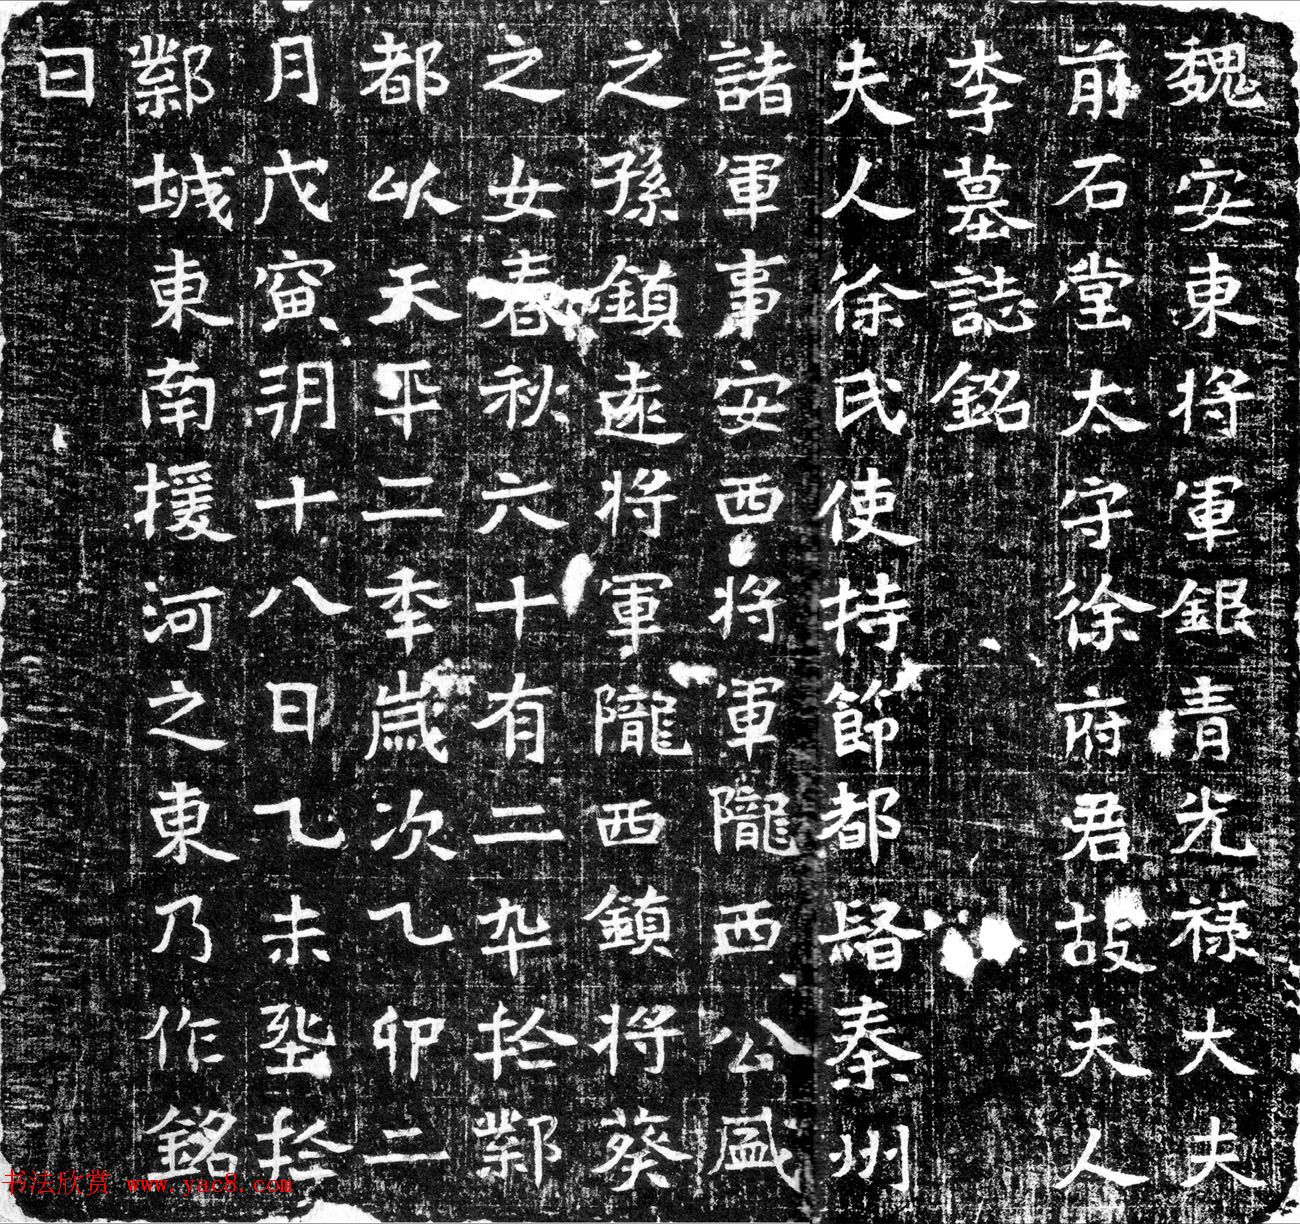 魏安東將軍銀青光祿大夫
前石堂太守徐府君故夫人
李墓誌銘
夫人徐氏使持節都督秦州
諸軍事安西將軍隴西公
之孫鎮遠將軍隴西鎮將葵
之女春秋六十有二卒於鄴
都以天平二年歲次乙卯二
月戊寅朔十八日乙未塟於
鄴城東南援河之東乃作銘
曰
书法欣赏 www.yac8.com